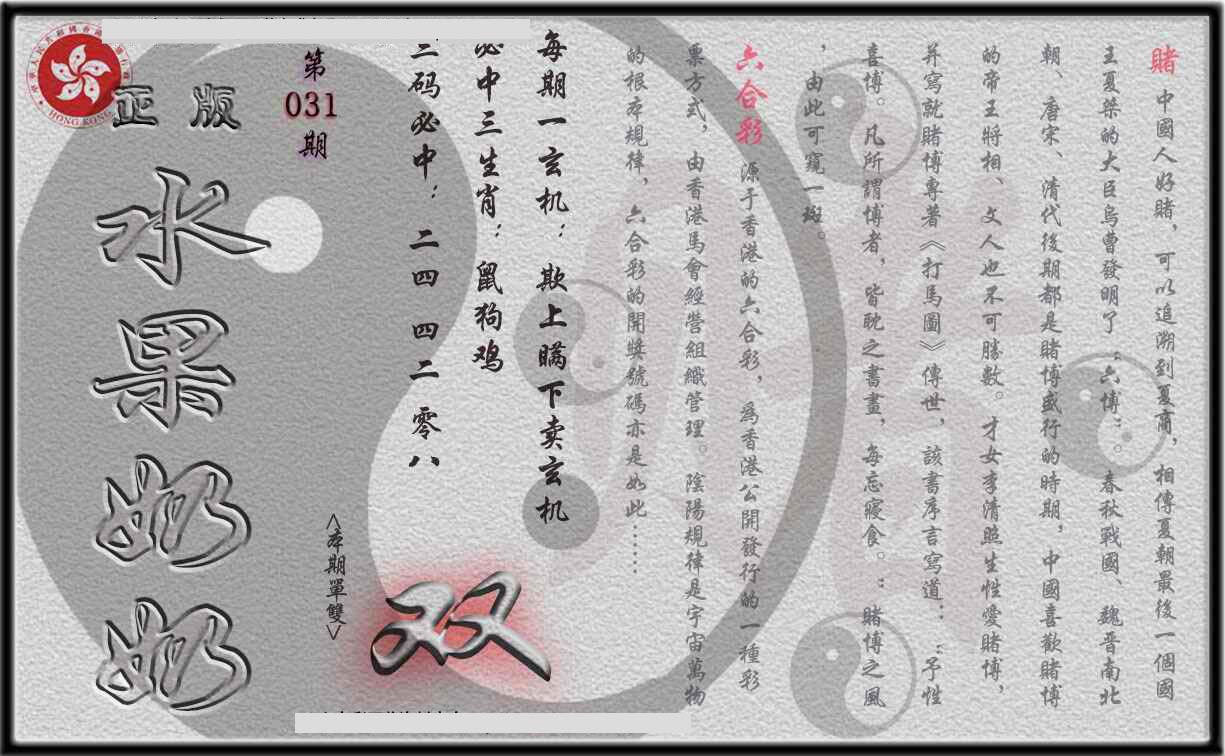 賭 中國人好賭，可以追溯到夏商，相傳夏朝最後一個國
王夏桀的大臣烏曹發明了“六博”。春秋戰國、魏晋南北
朝、唐宋、清代後期都是賭博盛行的時期，中國喜歡賭博
的帝王將相、文人也不可勝數。才女李清照生性愛賭博，
并寫就賭博專著《打馬圖》傳世，該書序言寫道：“予性
喜博。凡所謂博者，皆耽之晝晝，每忘寢食。”賭博之風
，由此可窺一斑。
六合彩 源于香港的六合彩，為香港公開發行的一種彩
票方式，由香港馬會經營組織管理。陰陽規律是宇宙萬物
的根本規律，六合彩的開獎號碼亦是如此……
每期一玄机：欺上瞒下卖玄机
必中三生肖：鼠狗鸡
三码必中：二四 四二 零八
双
<本期單雙>
第
031
期
正版
水果奶奶
HONG KONG